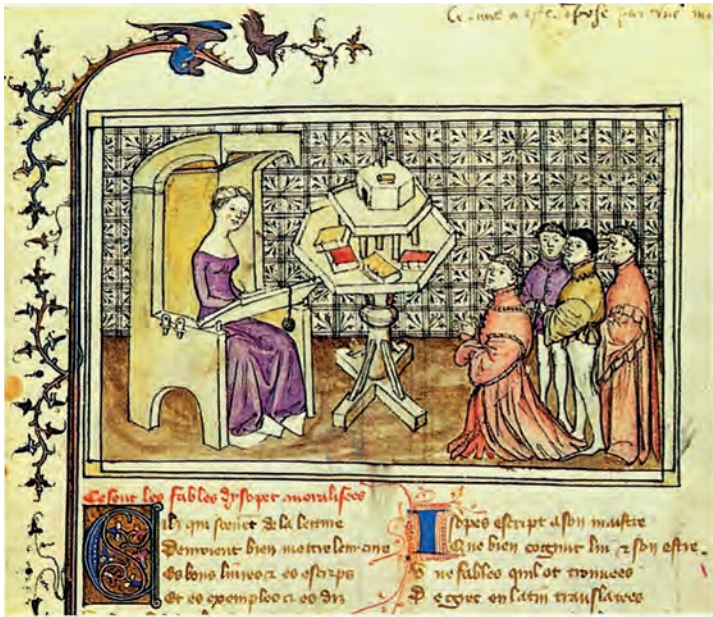 Ce
par
Ce sont les fables dysopet moralisees
Cilz qui de la lettre
Deuroient bien mettre leur
Es bons liures & es escrips
Et es exemples & es diz
Isopes escript a son maistre
Que bien cognut lui & son estre
Vne fables quil ot trouuees
De grec en latin translatees